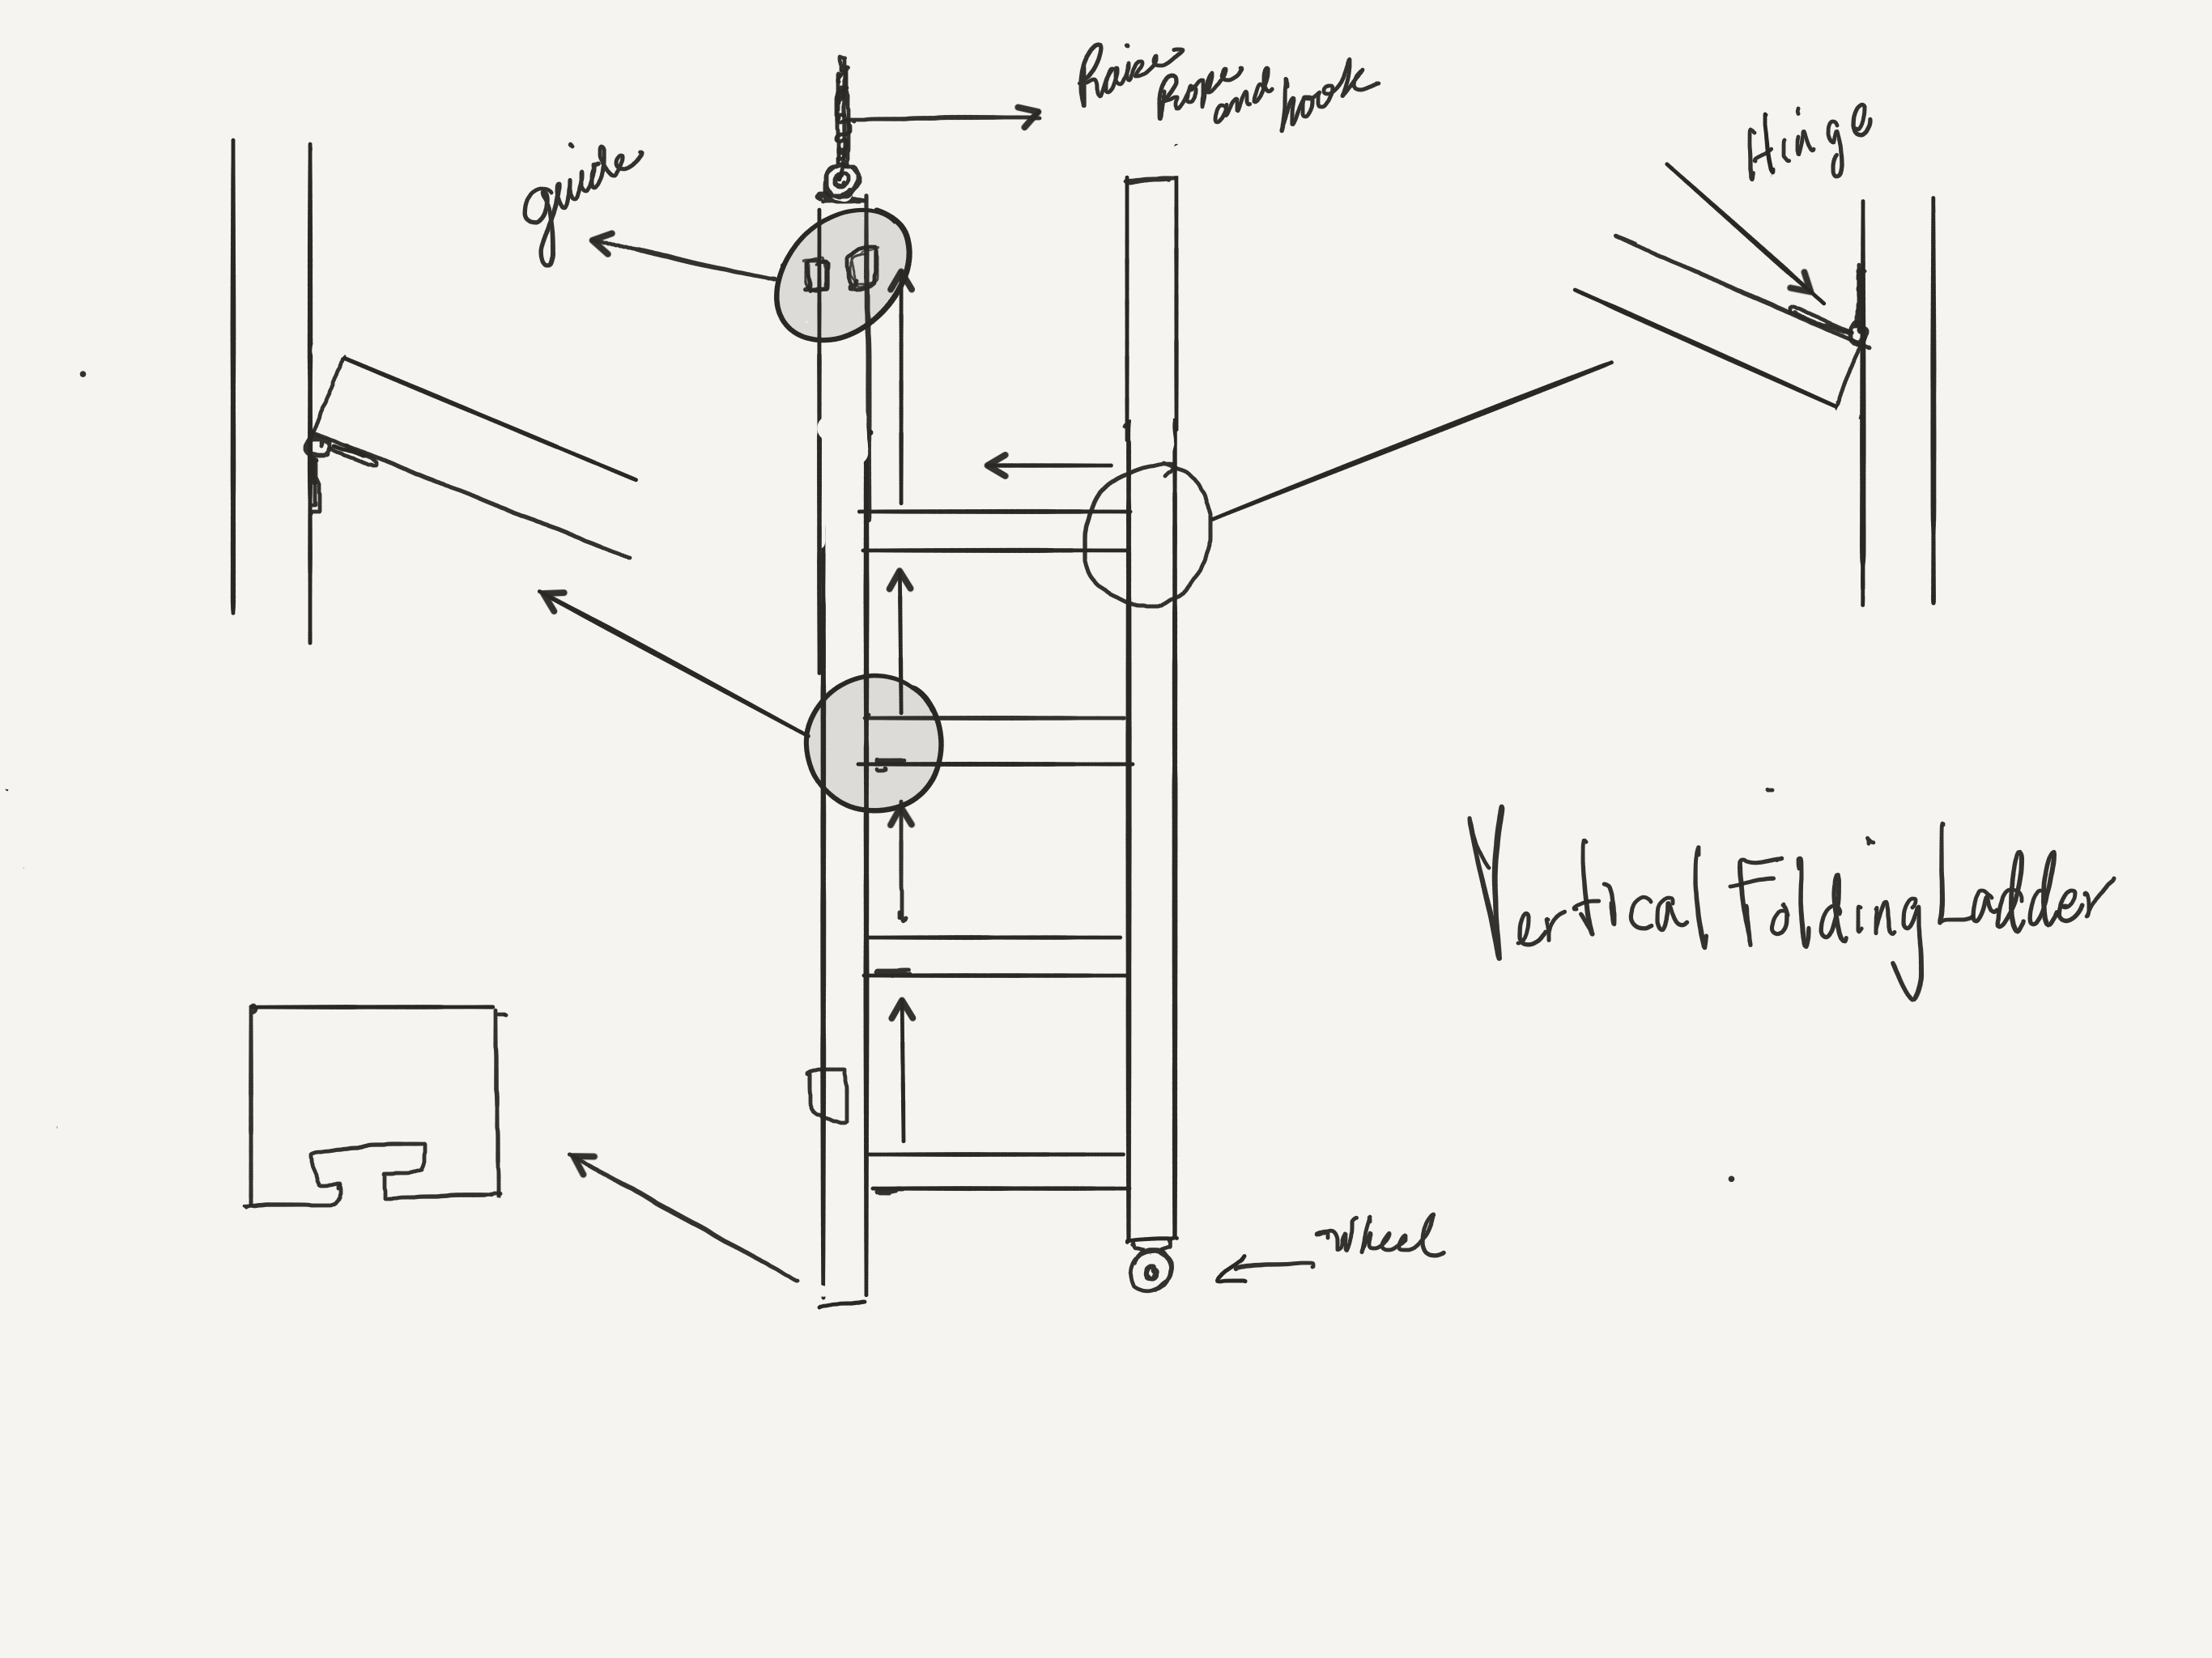 Raise
Rope
and hook
guide
Hinge
Vertical Folding Ladder
Wheel